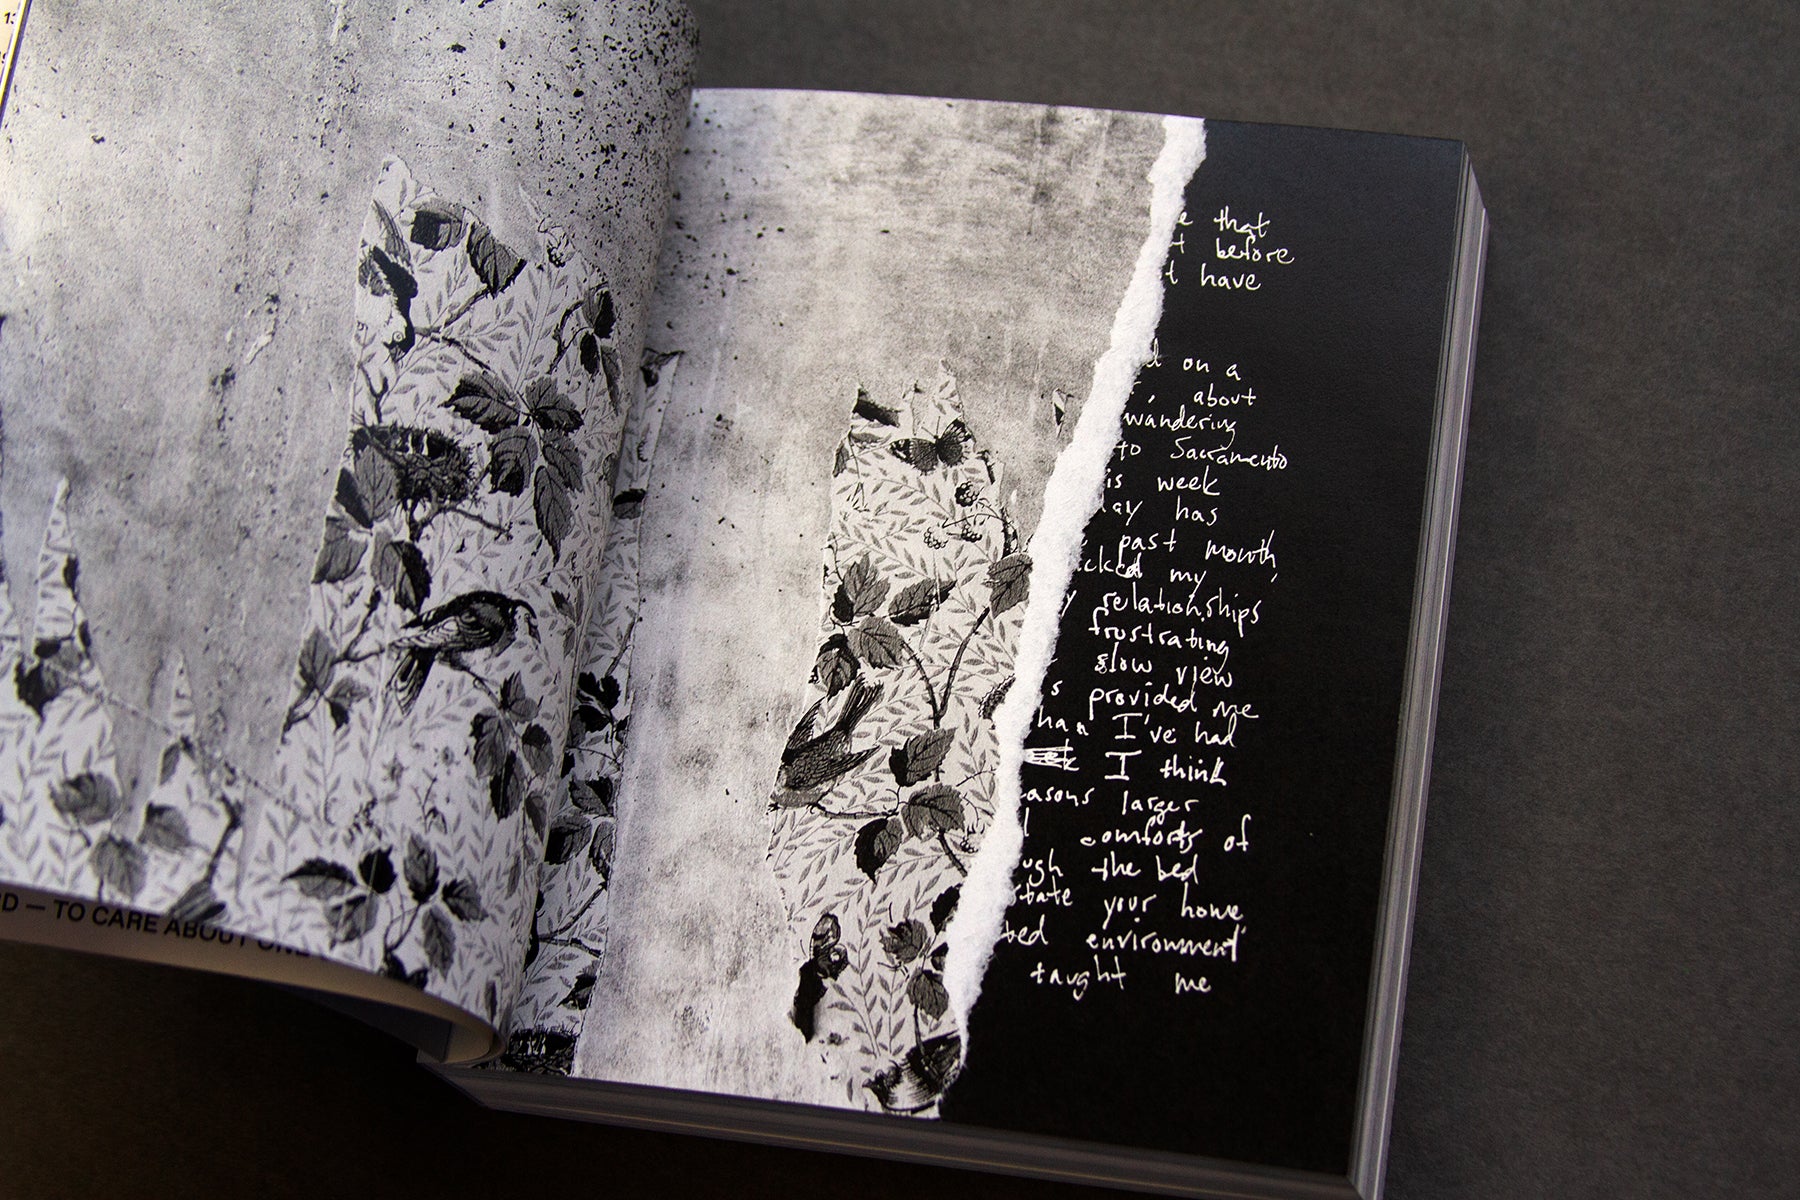 13
D — TO CARE ABOUT ONE
e that
t before
t have
d on a
, about
wandering
to Sacramento
is week
ay has
past month,
cked my
y relationships
frustrating
slow view
s provided me
han I've had
I think
easons larger
l comforts of
ugh the bed
state your home
ted environment
taught me